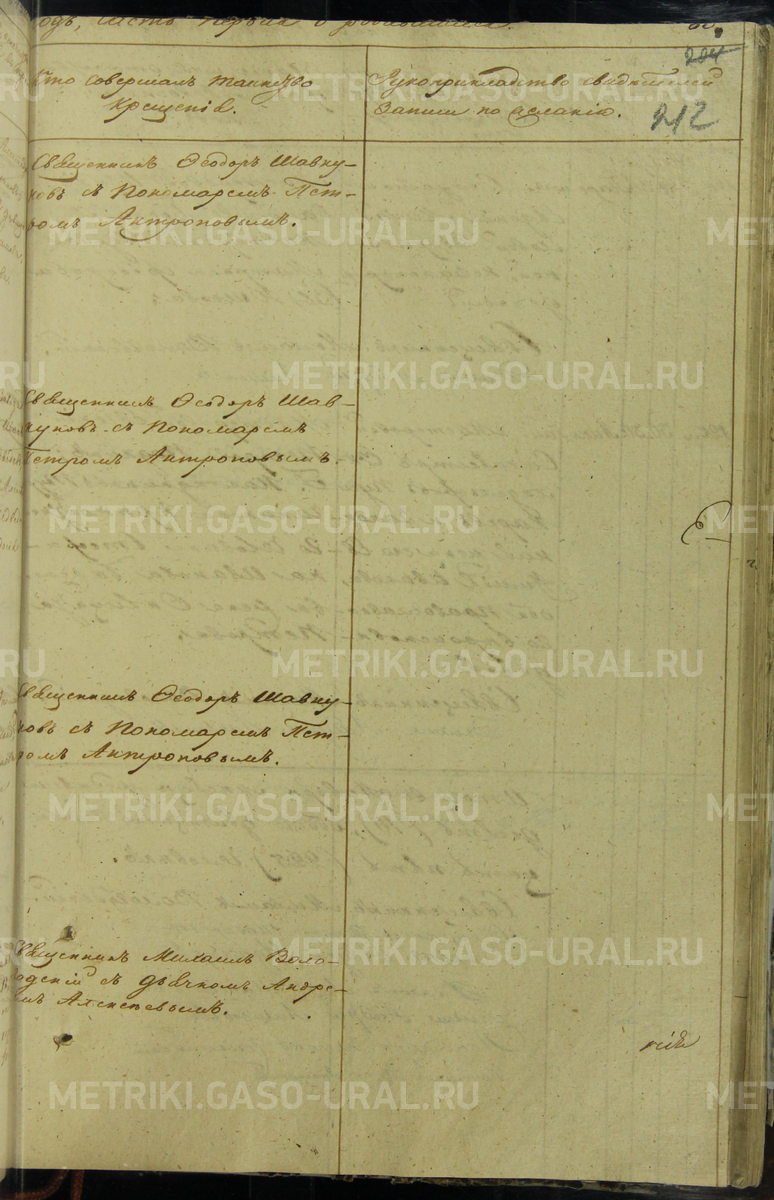 годъ, часть первая о родившихся.
204
212
Кто совершалъ таинство
крещенія.
Рукоприкладство свидѣтелей
записи по желанію.
Священникъ Ѳеодоръ Шавку-
новъ съ Пономаремъ Пет-
ромъ Антроповымъ.
Священникъ Ѳеодоръ Шав-
куновъ съ Пономаремъ
Петромъ Антроповымъ.
Священникъ Ѳеодоръ Шавку-
новъ съ Пономаремъ Пет-
ромъ Антроповымъ.
Священникъ Михаилъ
съ дьячкомъ Андре-
емъ
METRIKI.GASO-URAL.RU